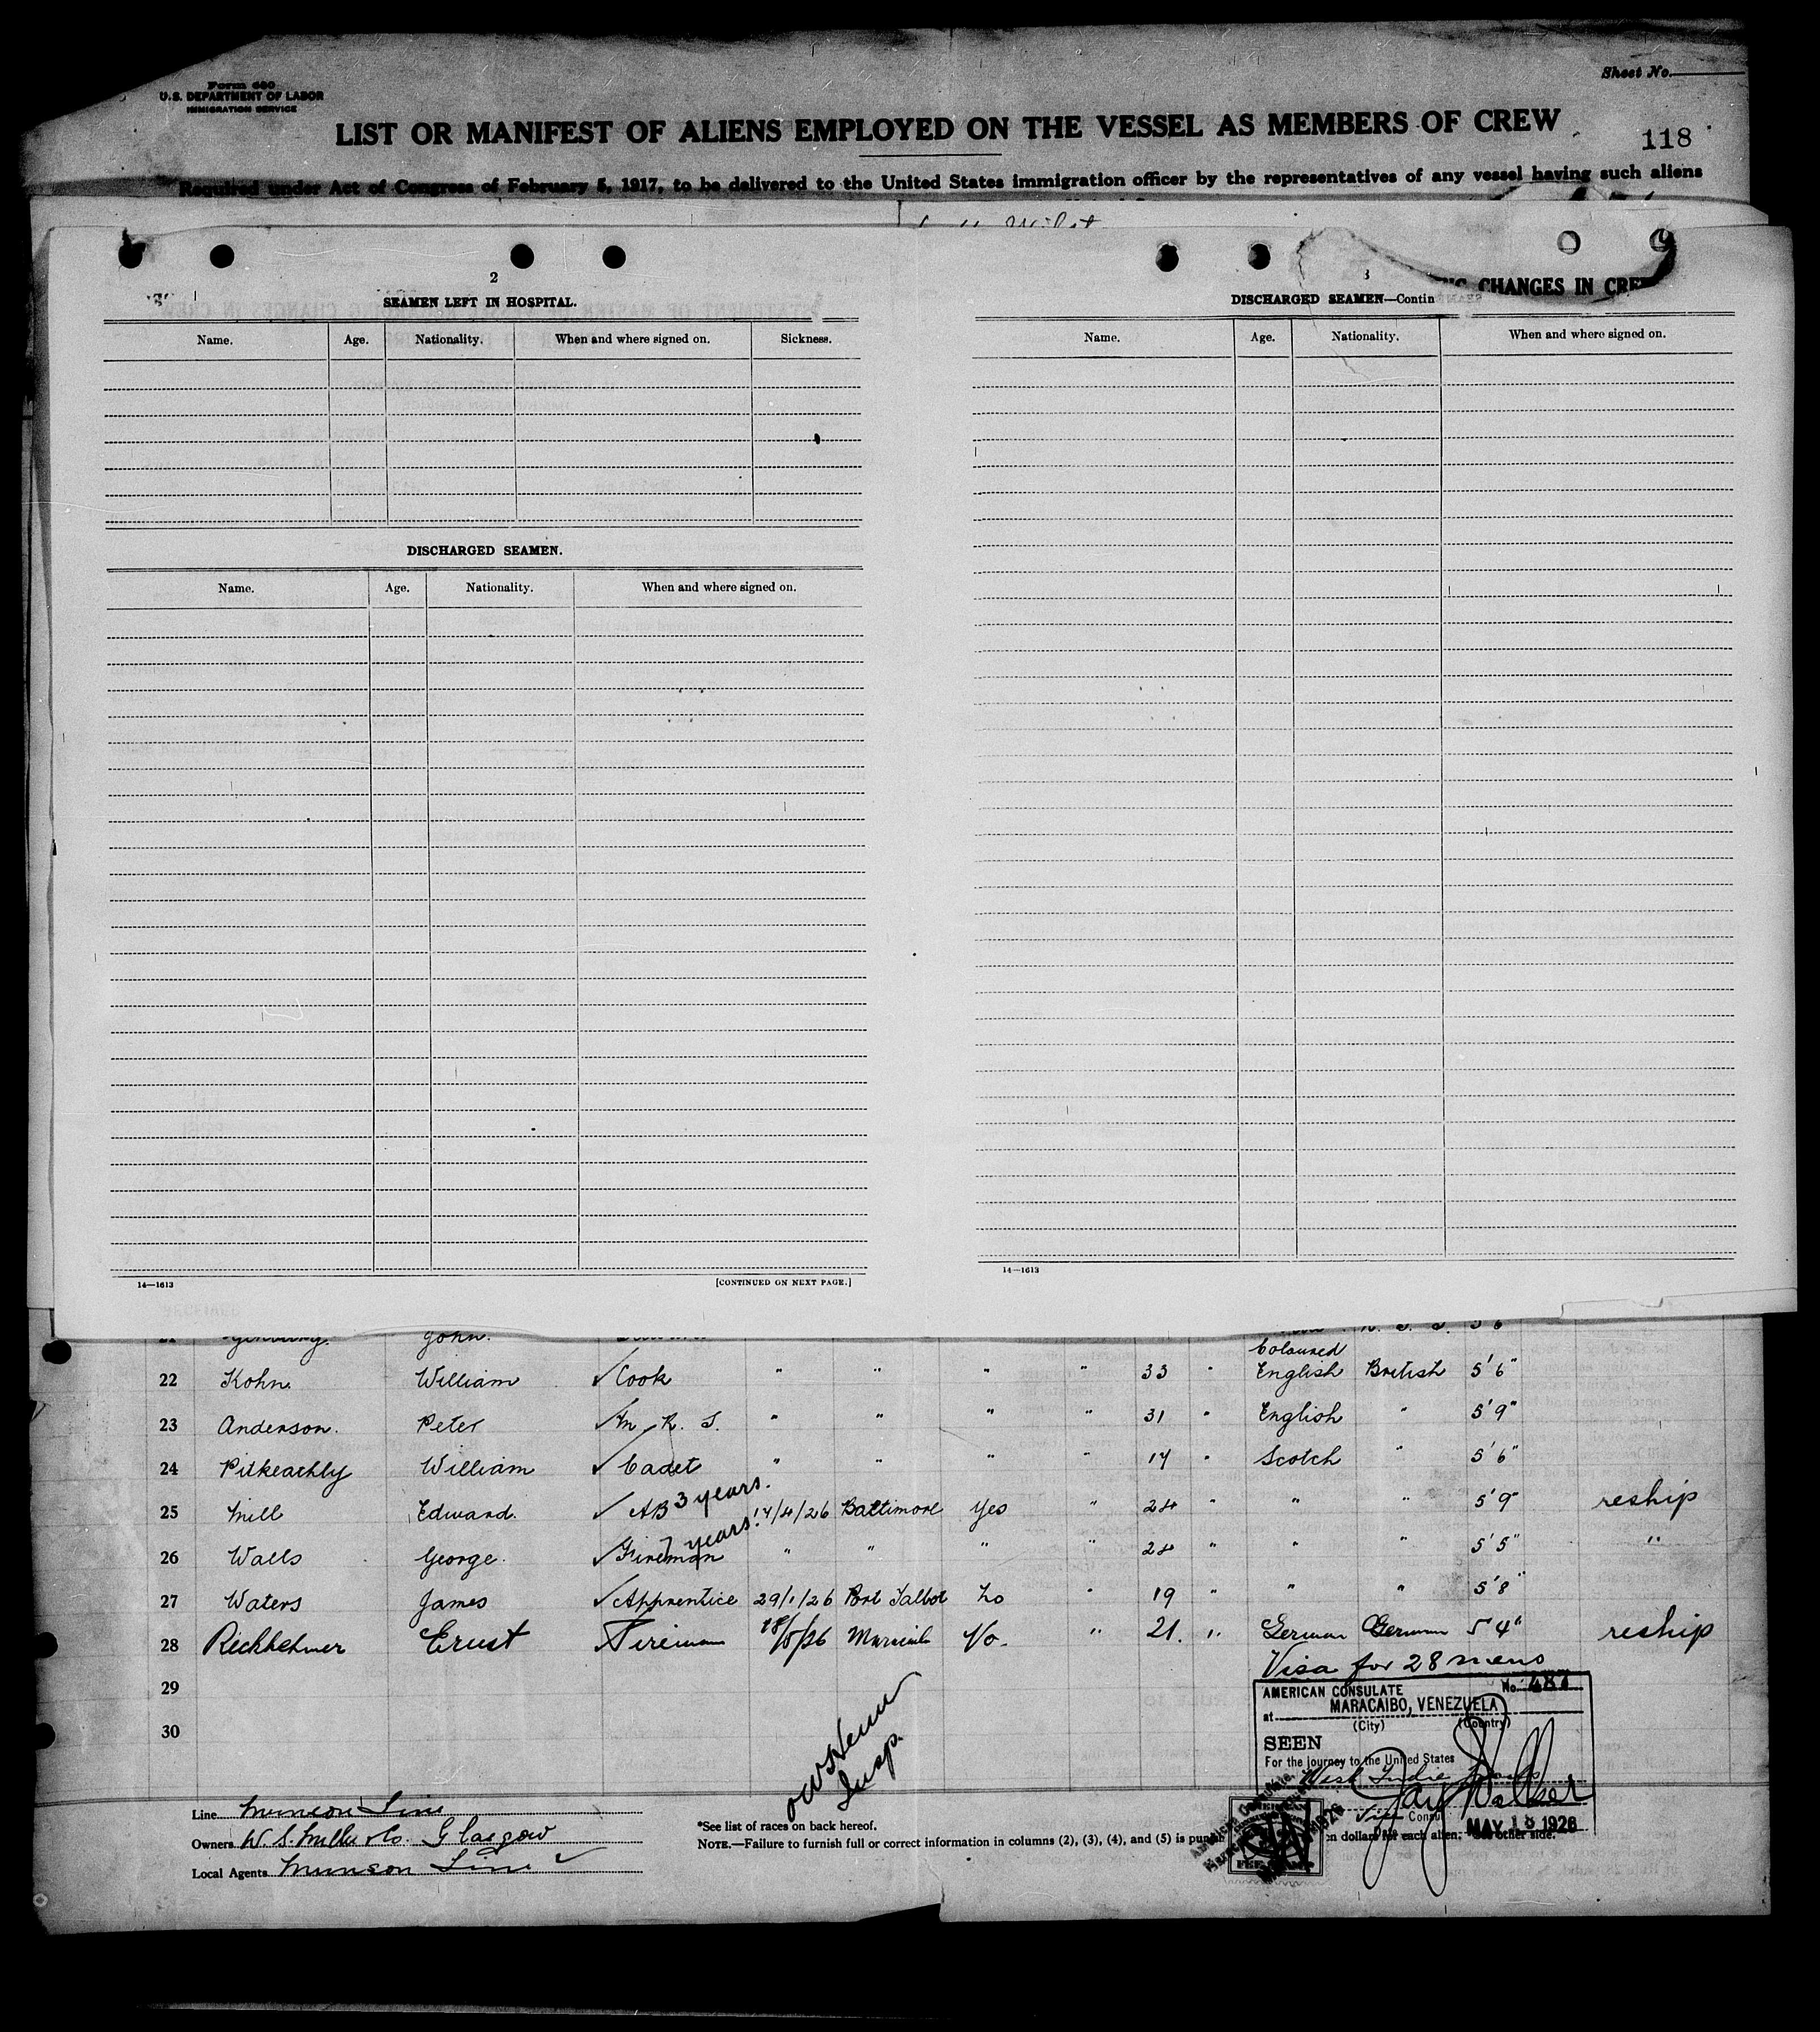 Form 680
U.S. DEPARTMENT OF LABOR
IMMIGRATION SERVICE
Sheet No.
LIST OR MANIFEST OF ALIENS EMPLOYED ON THE VESSEL AS MEMBERS OF CREW
118
Required under Act of Congress of February 5, 1917, to be delivered to the United States immigration officer by the representatives of any vessel having such aliens
2
SEAMEN LEFT IN HOSPITAL.
Name. Age. Nationality. When and where signed on. Sickness.
DISCHARGED SEAMEN.
Name. Age. Nationality. When and where signed on.
14—1613 [CONTINUED ON NEXT PAGE.]
3
CHANGES IN CRE
DISCHARGED SEAMEN—Contin
Name. Age. Nationality. When and where signed on.
14—1613
21 John. 5'6
Coloured
22 Kohn. William Cook " " " " 33 " English British 5'6"
23 Anderson. Peter M. R. S. " " " " 31 " English " 5'9"
24 Pitkeathly William Cadet " " " " 17 " Scotch " 5'6"
25 Mill Edward. AB 3 years. 14/4/26 Baltimore Yes " 24 " " " 5'9" reship
26 Walls George. Fireman 7 years. " " " " 24 " " " 5'5" "
27 Waters James Apprentice 29/1/26 Port Talbot No " 19 " " " 5'8"
28 Ernst Fireman 18/5/26 No. " 21. " German German 5'4" reship
Visa for 28 mens
29
30
AMERICAN CONSULATE No. 487
at MARACAIBO, VENEZUELA
(City) (Country)
SEEN
For the journey to the United States
West Indie
Jay Walker
Vice Consul
MAY 18 1926
Insp.
Line Munson Line
Owners W. S. Miller & Co. Glasgow
Local Agents Munson Line
*See list of races on back hereof.
NOTE.—Failure to furnish full or correct information in columns (2), (3), (4), and (5) is punish en dollars for each alien. See other side.